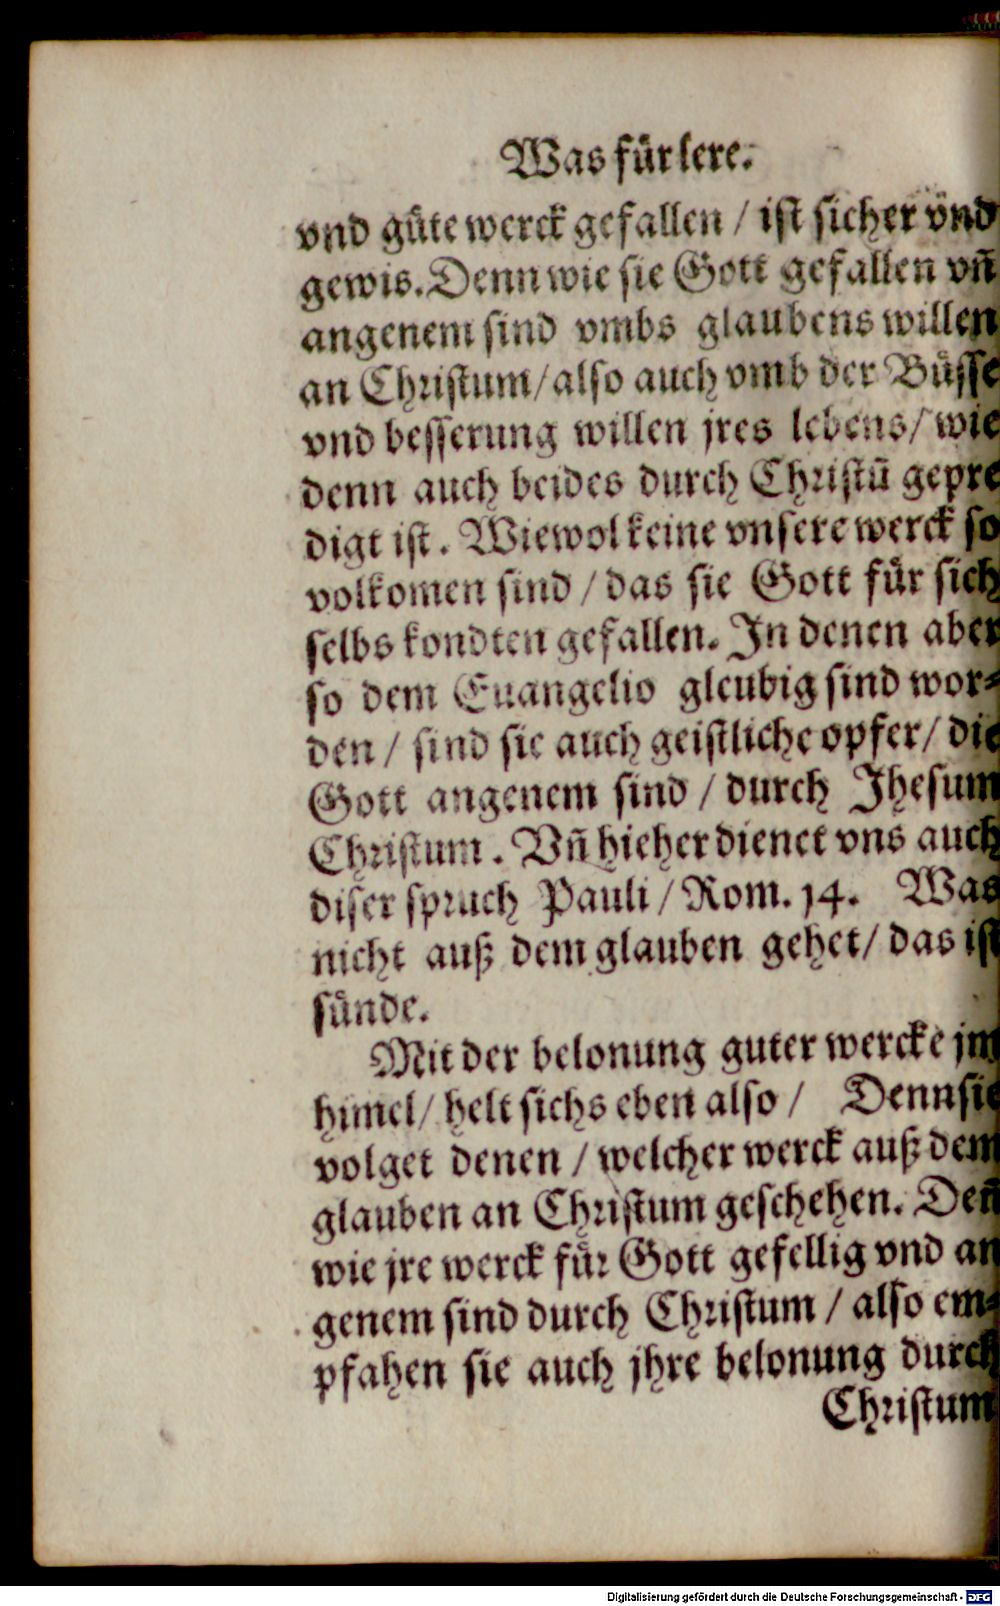 Was für lere.
vnd gůte werck gefallen / ist sicher vnd
gewis. Denn wie sie Gott gefallen vñ
angenem sind vmbs glaubens willen
an Christum/ also auch vmb der Bůsse
vnd besserung willen jres lebens/ wie
denn auch beides durch Christū gepre
digt ist. Wiewol keine vnsere werck so
volkomen sind / das sie Gott für sich
selbs kondten gefallen. In denen aber
so dem Euangelio gleubig sind wor⸗
den / sind sie auch geistliche opfer/ die
Gott angenem sind / durch Jhesum
Christum. Vñ hieher dienet vns auch
diser spruch Pauli / Rom. 14. Was
nicht auß dem glauben gehet/ das ist
sünde.
Mit der belonung guter wercke jm
himel/ helt sichs eben also / Denn sie
volget denen / welcher werck auß dem
glauben an Christum geschehen. Deñ
wie jre werck für Gott gefellig vnd an
genem sind durch Christum / also em⸗
pfahen sie auch jhre belonung durch
Christum
Digitalisierung gefördert durch die Deutsche Forschungsgemeinschaft - DFG